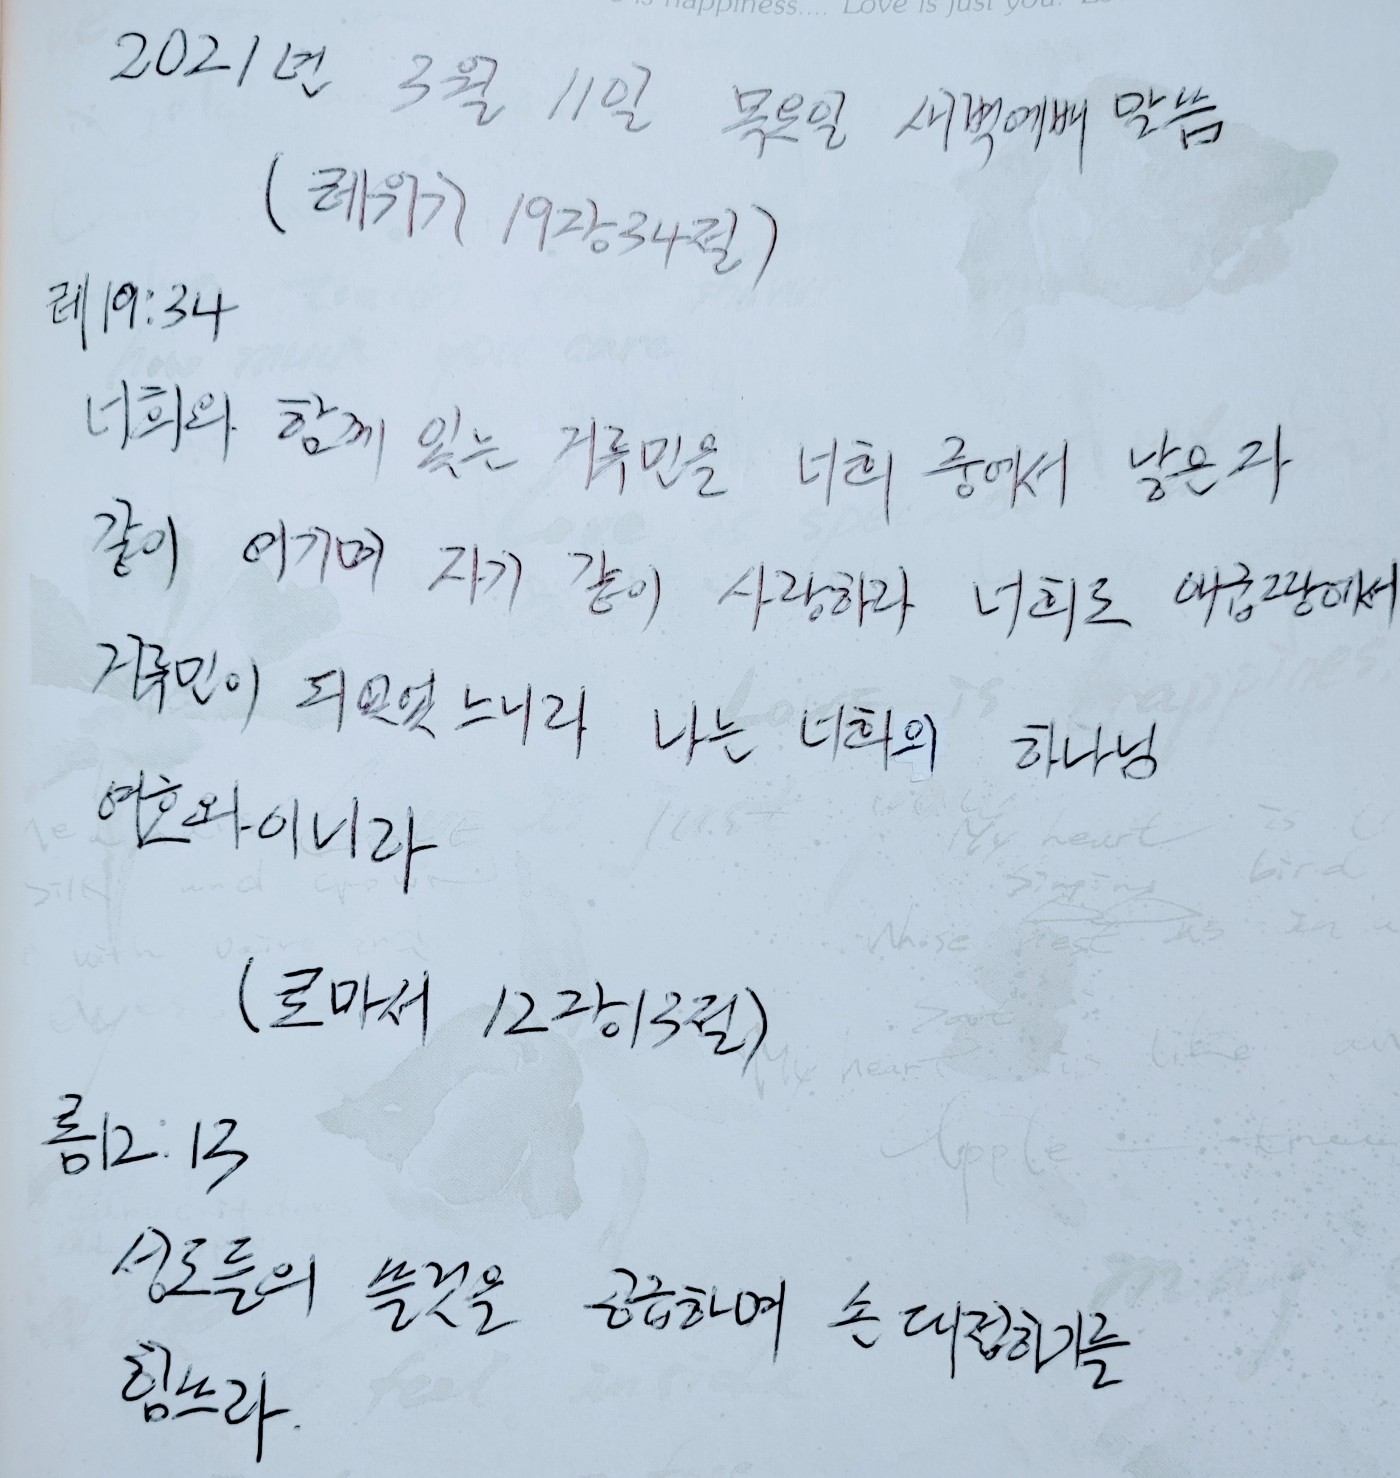 is happiness.... Love is just you.
2021년 3월 11일 목요일 새벽예배 말씀
(레위기 19장34절)
레19:34
너희와 함께 있는 거류민을 너희 중에서 낳은자
같이 여기며 자기 같이 사랑하라 너희도 애굽땅에서
거류민이 되였느니라 나는 너희의 하나님
여호와이니라
(로마서 12장13절)
롬12:13
성도들의 쓸것을 공급하며 손 대접하기를
힘쓰라.